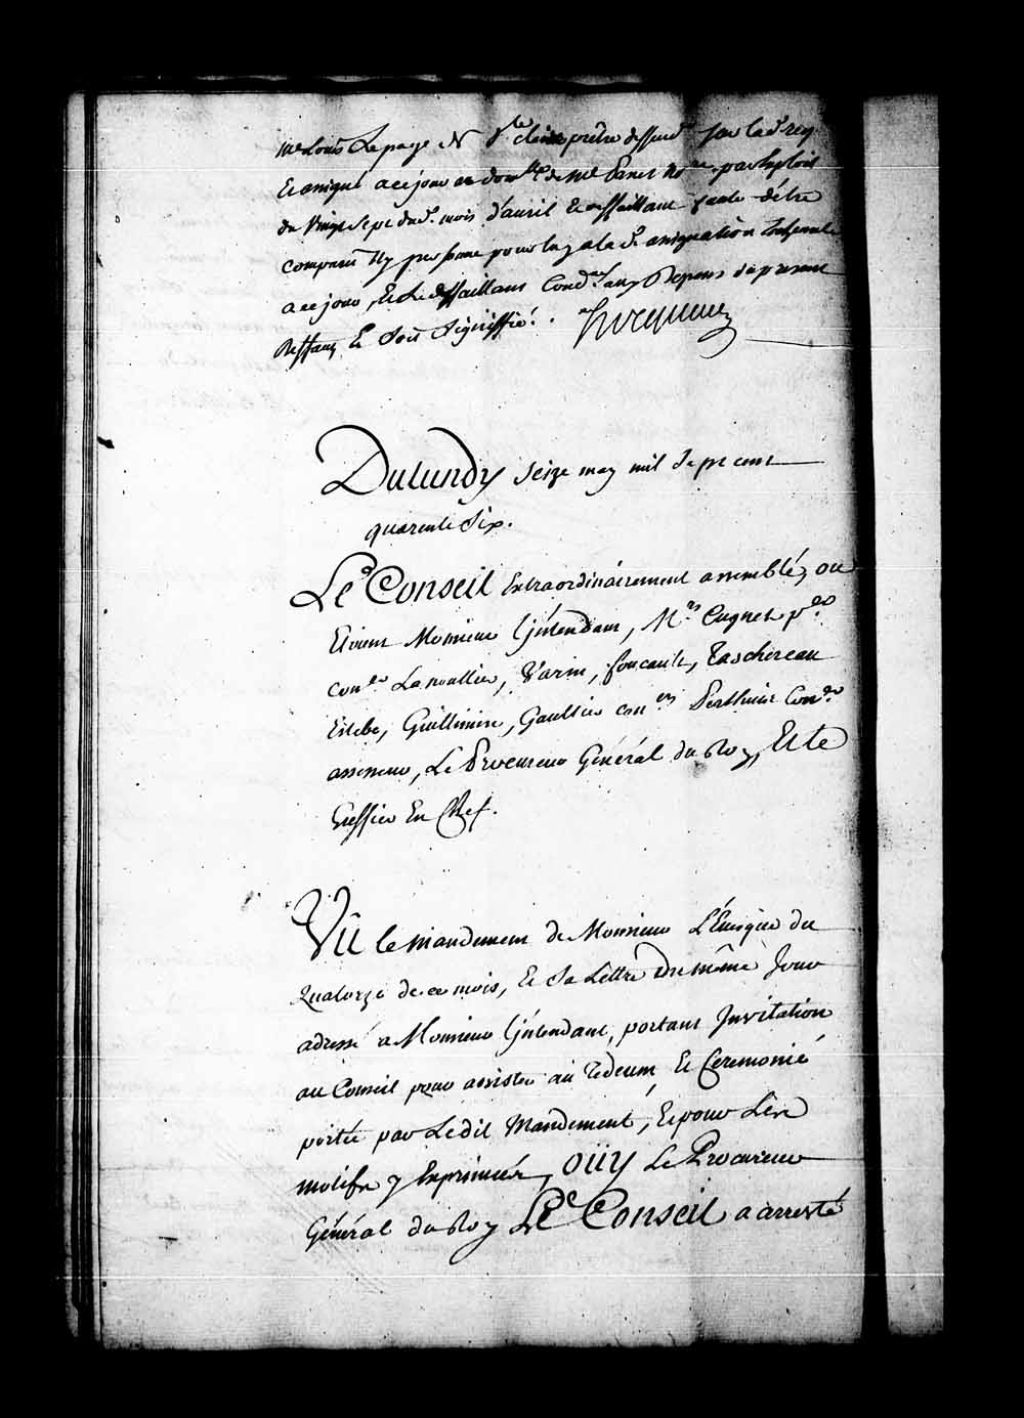 Me Louis Lepage de Ste Claire prêtre deffend. sur lad. req.
Et assigné a ce jour en domlle de Me Panet Nore par Exploit
du Vingt Sept dud. mois d'auril Et deffaillant faute d'être
comparu Ny personne pour luy a lad. assignation
a ce jour, Et Le deffaillant Cond. aux Depens du present
Deffaut, Et Soit Signiffié.
hocquart
Du Lundy Seize may mil Sept cent
quarente Six.
Le Conseil Extraordinairement assemblé, ou
Etoient Monsieur L'jntendant, Mrs Cugnet per
coner Lanoullier, Varin, foucault, Taschereau
Estebe, Guillimin, Gaultier coners Perthuis Coner
assesseur, Le Procureur Général du Roy, Et le
Greffier En Chef.
Vû le mandement de Monsieur L'Euêque du
Quatorze de ce mois, Et Sa Lettre du même Jour
adressé a Monsieur L'jntendant, portant Jnvitation
au Conseil pour assister au Tedeum Et Ceremonie
portée par Ledit Mandement, Et pour Les
motifs y Exprimés, oüy Le Procureur
Général du Roy Le Conseil a arresté